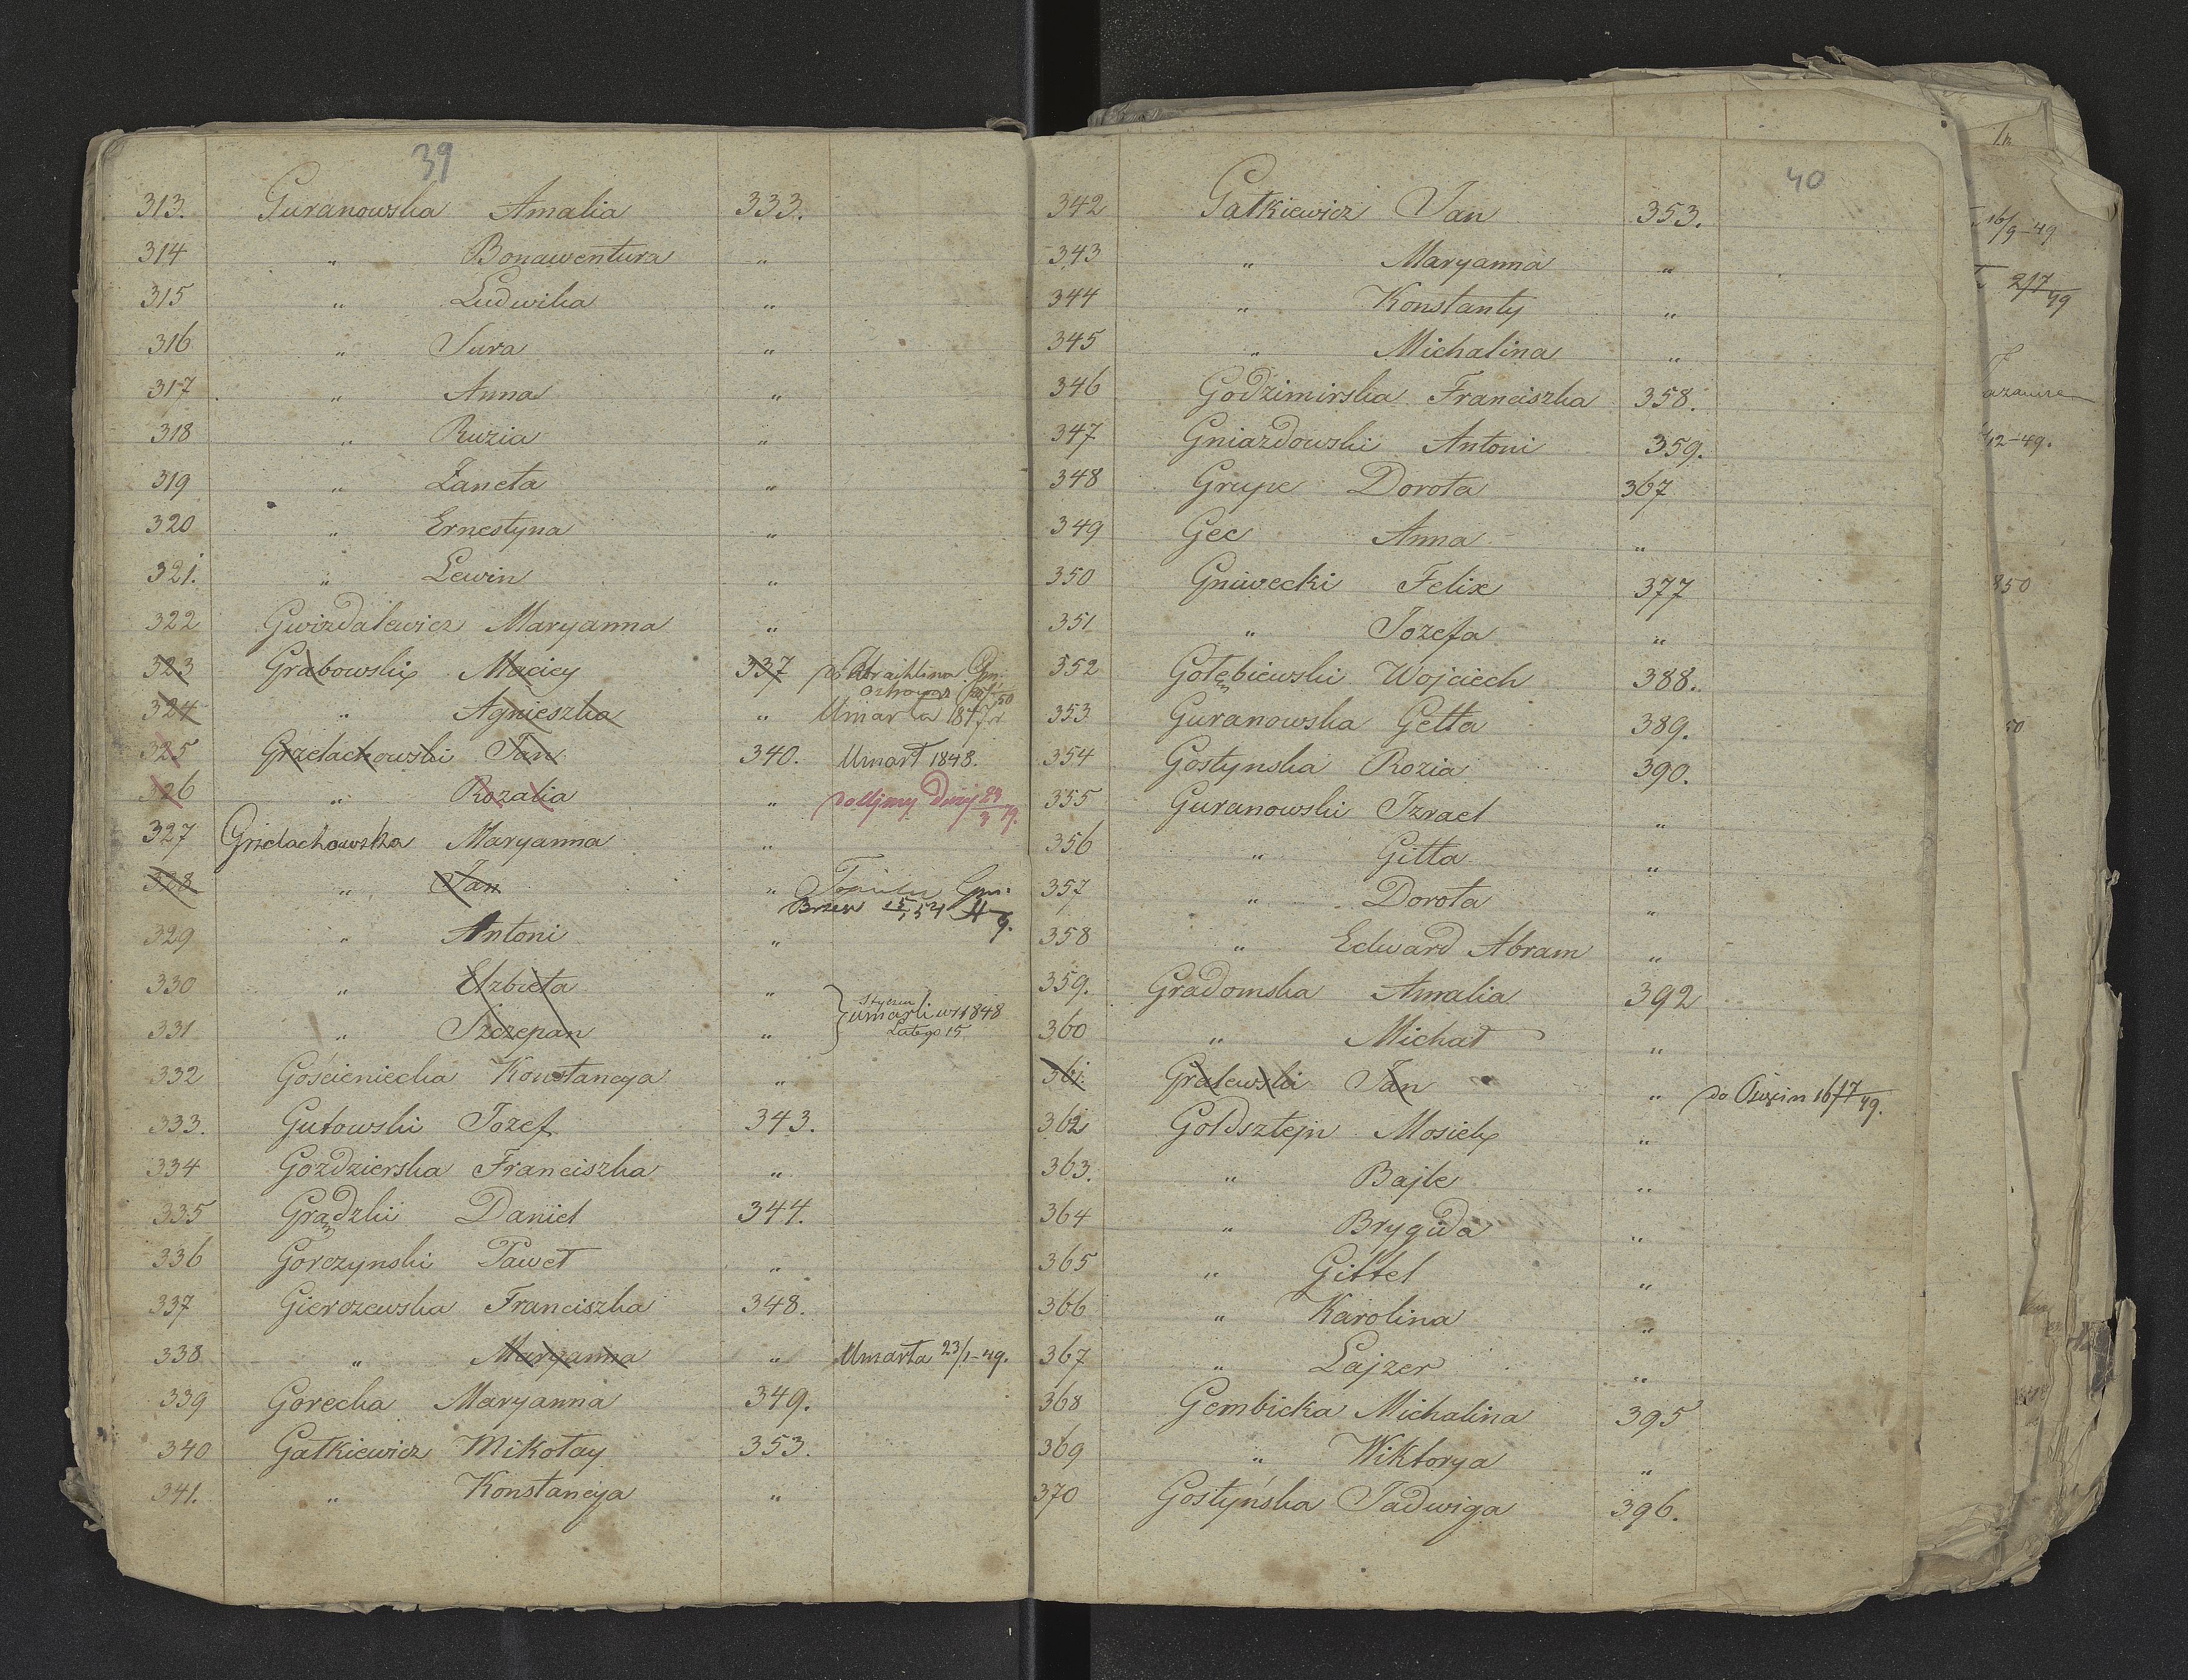 39
313. Guranowska Amalia 333.
314 " Bonawentura "
315 " Ludwika "
316 " Sura "
317 " Anna "
318 " Ruzia "
319 " Żaneta "
320 " Ernestyna "
321. " Lewin "
322 Gwizdalewicz Maryanna "
323 Grabowski Maciey 337
324 " Agnieszka " Umarła 1847 r
325 Grzelachowski Jan 340. Umarł 1848.
326 " Rozalia " do 23/3 49.
327 Grzelachowska Maryanna "
328 " Jan "
329 " Antoni "
330 " Elzbieta " Stycznia
331 " Szczepan " umarli w r 1848
Lutego 15
332 Gościeniecka Konstancya "
333. Gutowski Jozef 343.
334 Gozdzierska Franciszka "
335 Grądzki Daniel 344.
336 Gorczynski Paweł "
337 Gierczewska Franciszka 348.
338 " Maryanna " Umarła 23/1-49.
339 Gorecka Maryanna 349.
340 Gatkiewicz Mikołay 353.
341. " Konstancya "
40
342 Gatkiewicz Jan 353.
343 " Maryanna "
344 " Konstanty "
345 " Michalina "
346 Godzimirska Franciszka 358.
347 Gniazdowski Antoni 359.
348 Grupe Dorota 367
349 Gec Anna "
350 Gniwecki Felix 377
351 " Jozefa "
352 Gołębiewski Wojciech 388.
353 Guranowska Getta 389.
354 Gostynska Rozia 390.
355 Guranowski Izrael "
356 " Gitta "
357 " Dorota "
358 " Edward Abram "
359. Gradomska Amalia 392
360 " Michał "
361. Gralewski Jan " do 16/7 49.
362 Goldsztejn Mosiek "
363. " Bajle "
364 " Brygida "
365 " Gittel "
366 " Karolina "
367 " Lajzer "
368 Gembicka Michalina 395
369 " Wiktorya "
370 Gostyńska Jadwiga 396.
16/9-49
2/7 49
12-49.
850
50